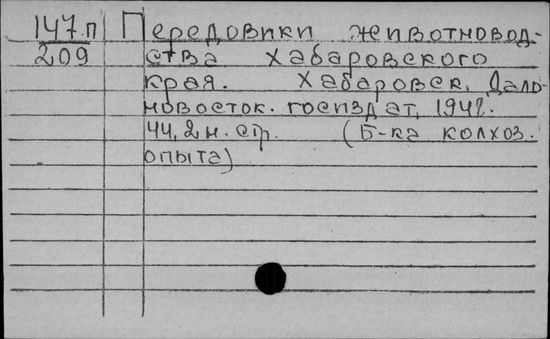 147п Передовики животновод-
209 ства Хабаровского
края. Хабаровск, Даль-
новосток. госиздат, 1941.
44, 2 н. стр. (Б-ка колхоз.
опыта)